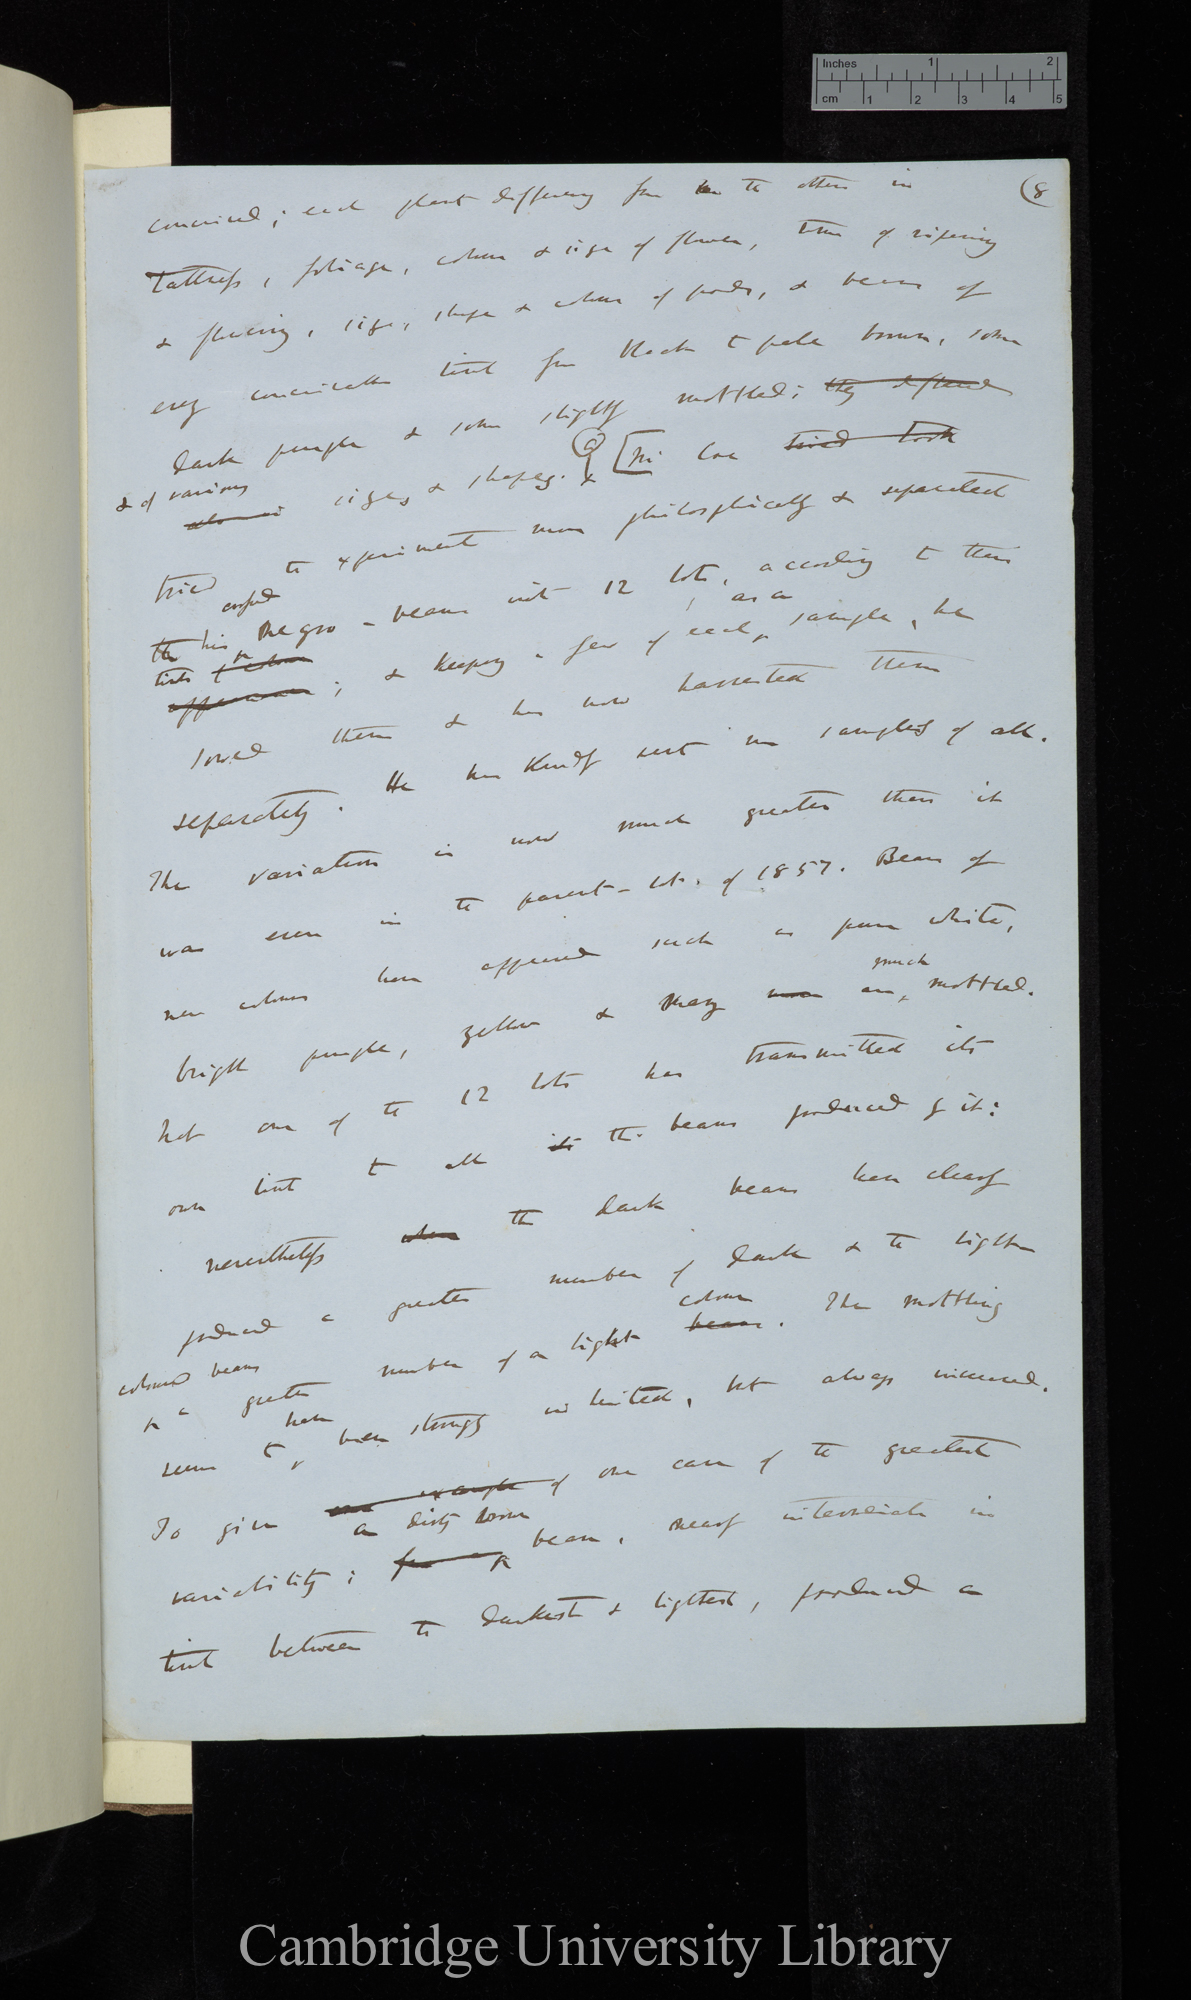 Inches 1 2
cm 1 2 3 4 5
(8
conceived; each plant differing from the others in
tallness, foliage, colour & size of flower, time of ripening
& flowering, size, shape & colour of pods, & beans of
every conceivable tint from black to pale brown, some
dark purple & some slightly mottled; they differed
& of various
sizes & shapes. & [Mr Coe tried took
tried to experiment more philosophically & separated
careful
the his Negro-beans into 12 lots, according to their
as a
tints & colour
appearance; & keeping a few of each, sample, he
sowed them & has now harvested them
separately. He has kindly sent me samples of all.
The variation is now much greater than it
was even in the parent-lot of 1857. Beans of
new colours have appeared such as pure white,
much
bright purple, yellow & many more are mottled.
Not one of the 12 lots has transmitted its
own tint to all its the beans produced by it:
nevertheless when the dark beans have clearly
produced a greater number of dark & the light
coloured beans
colour
a greater number of a light beans. The mottling
have
seems to been strongly inherited, but always increased.
To give one example of one case of the greatest
a dirty brown
variability; bean, nearly intermediate in
tint between the darkest & lightest, produced a
Cambridge University Library